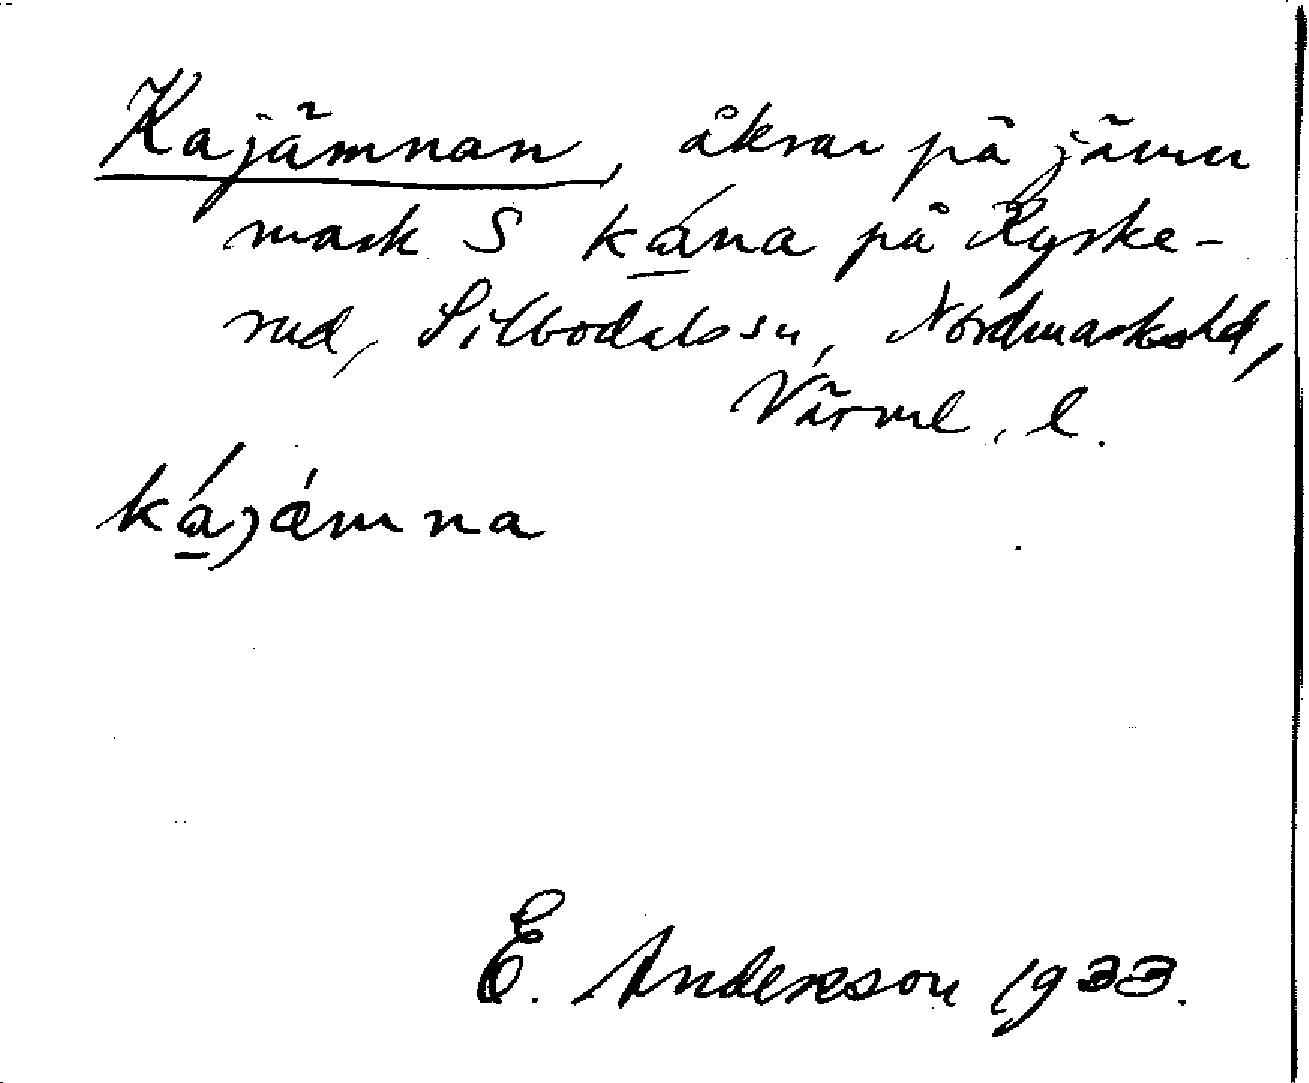 Kajämnan, åkrar på jämn
mark S ká̱na på Ryske-
rud, Silbodals sn, Nordmarks hd,
Värml. l.
ká̱jǽmna
E. Anderson 1933.